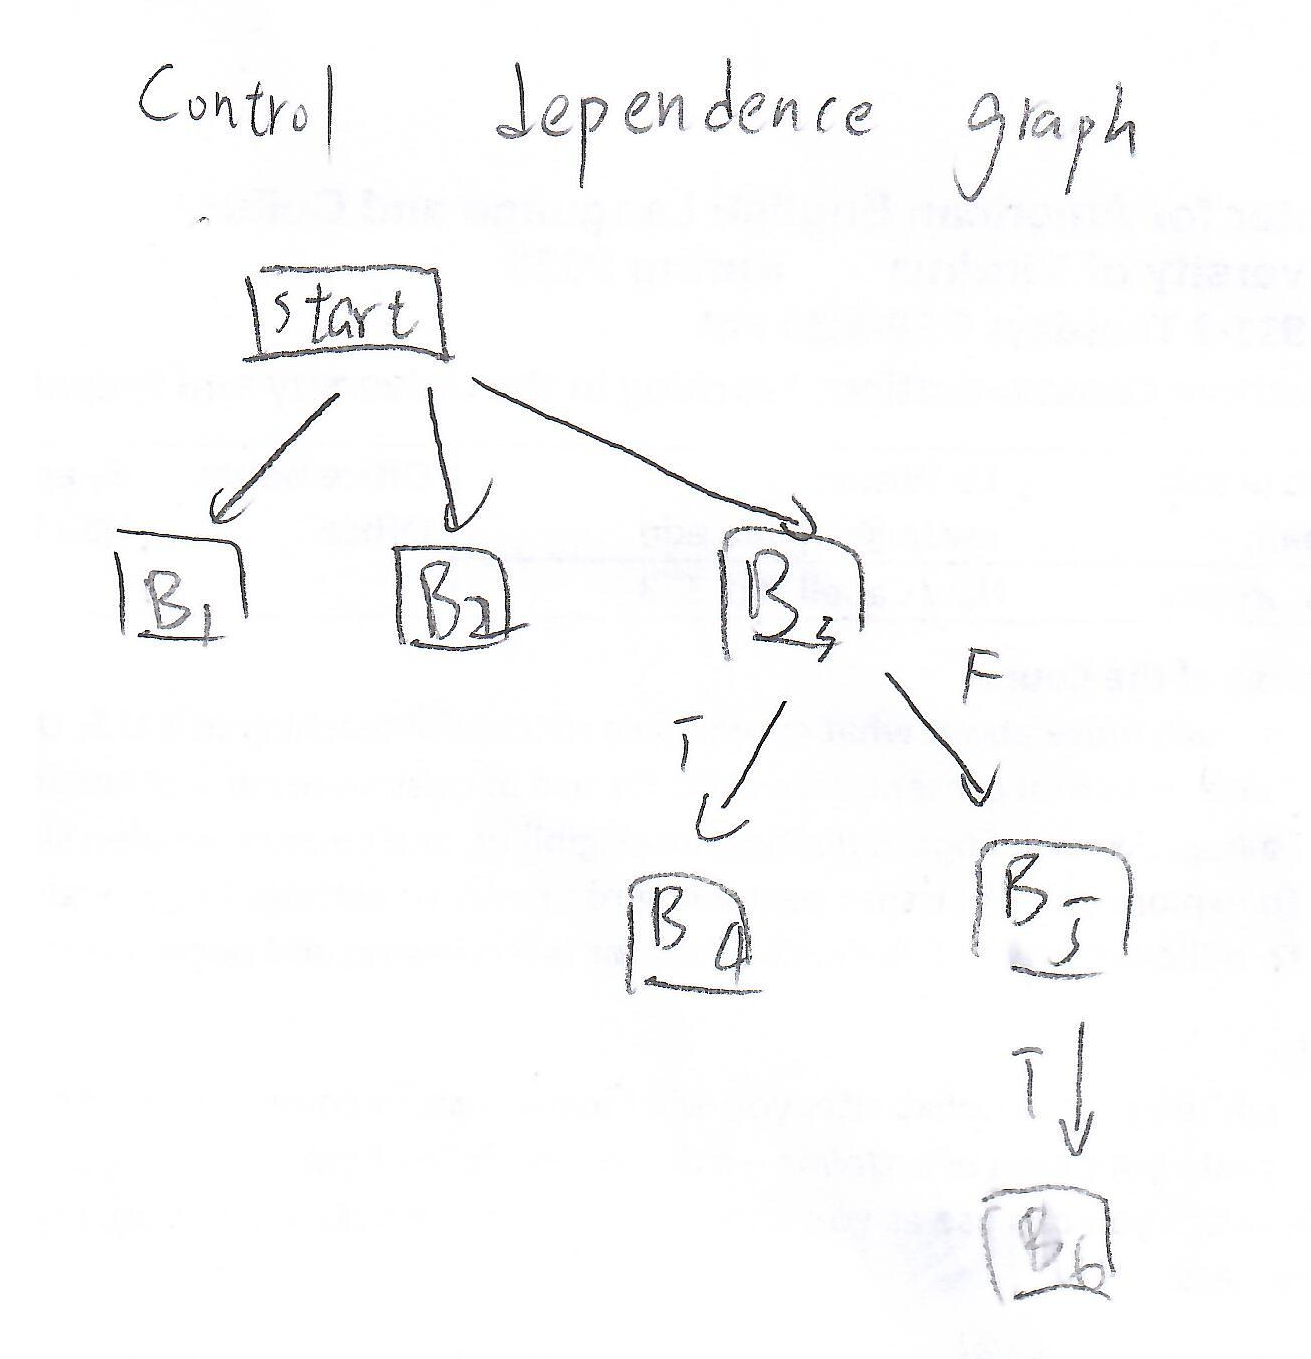 Control dependence graph
start
B1 B2 B3
T F
B4 B5
T
B6